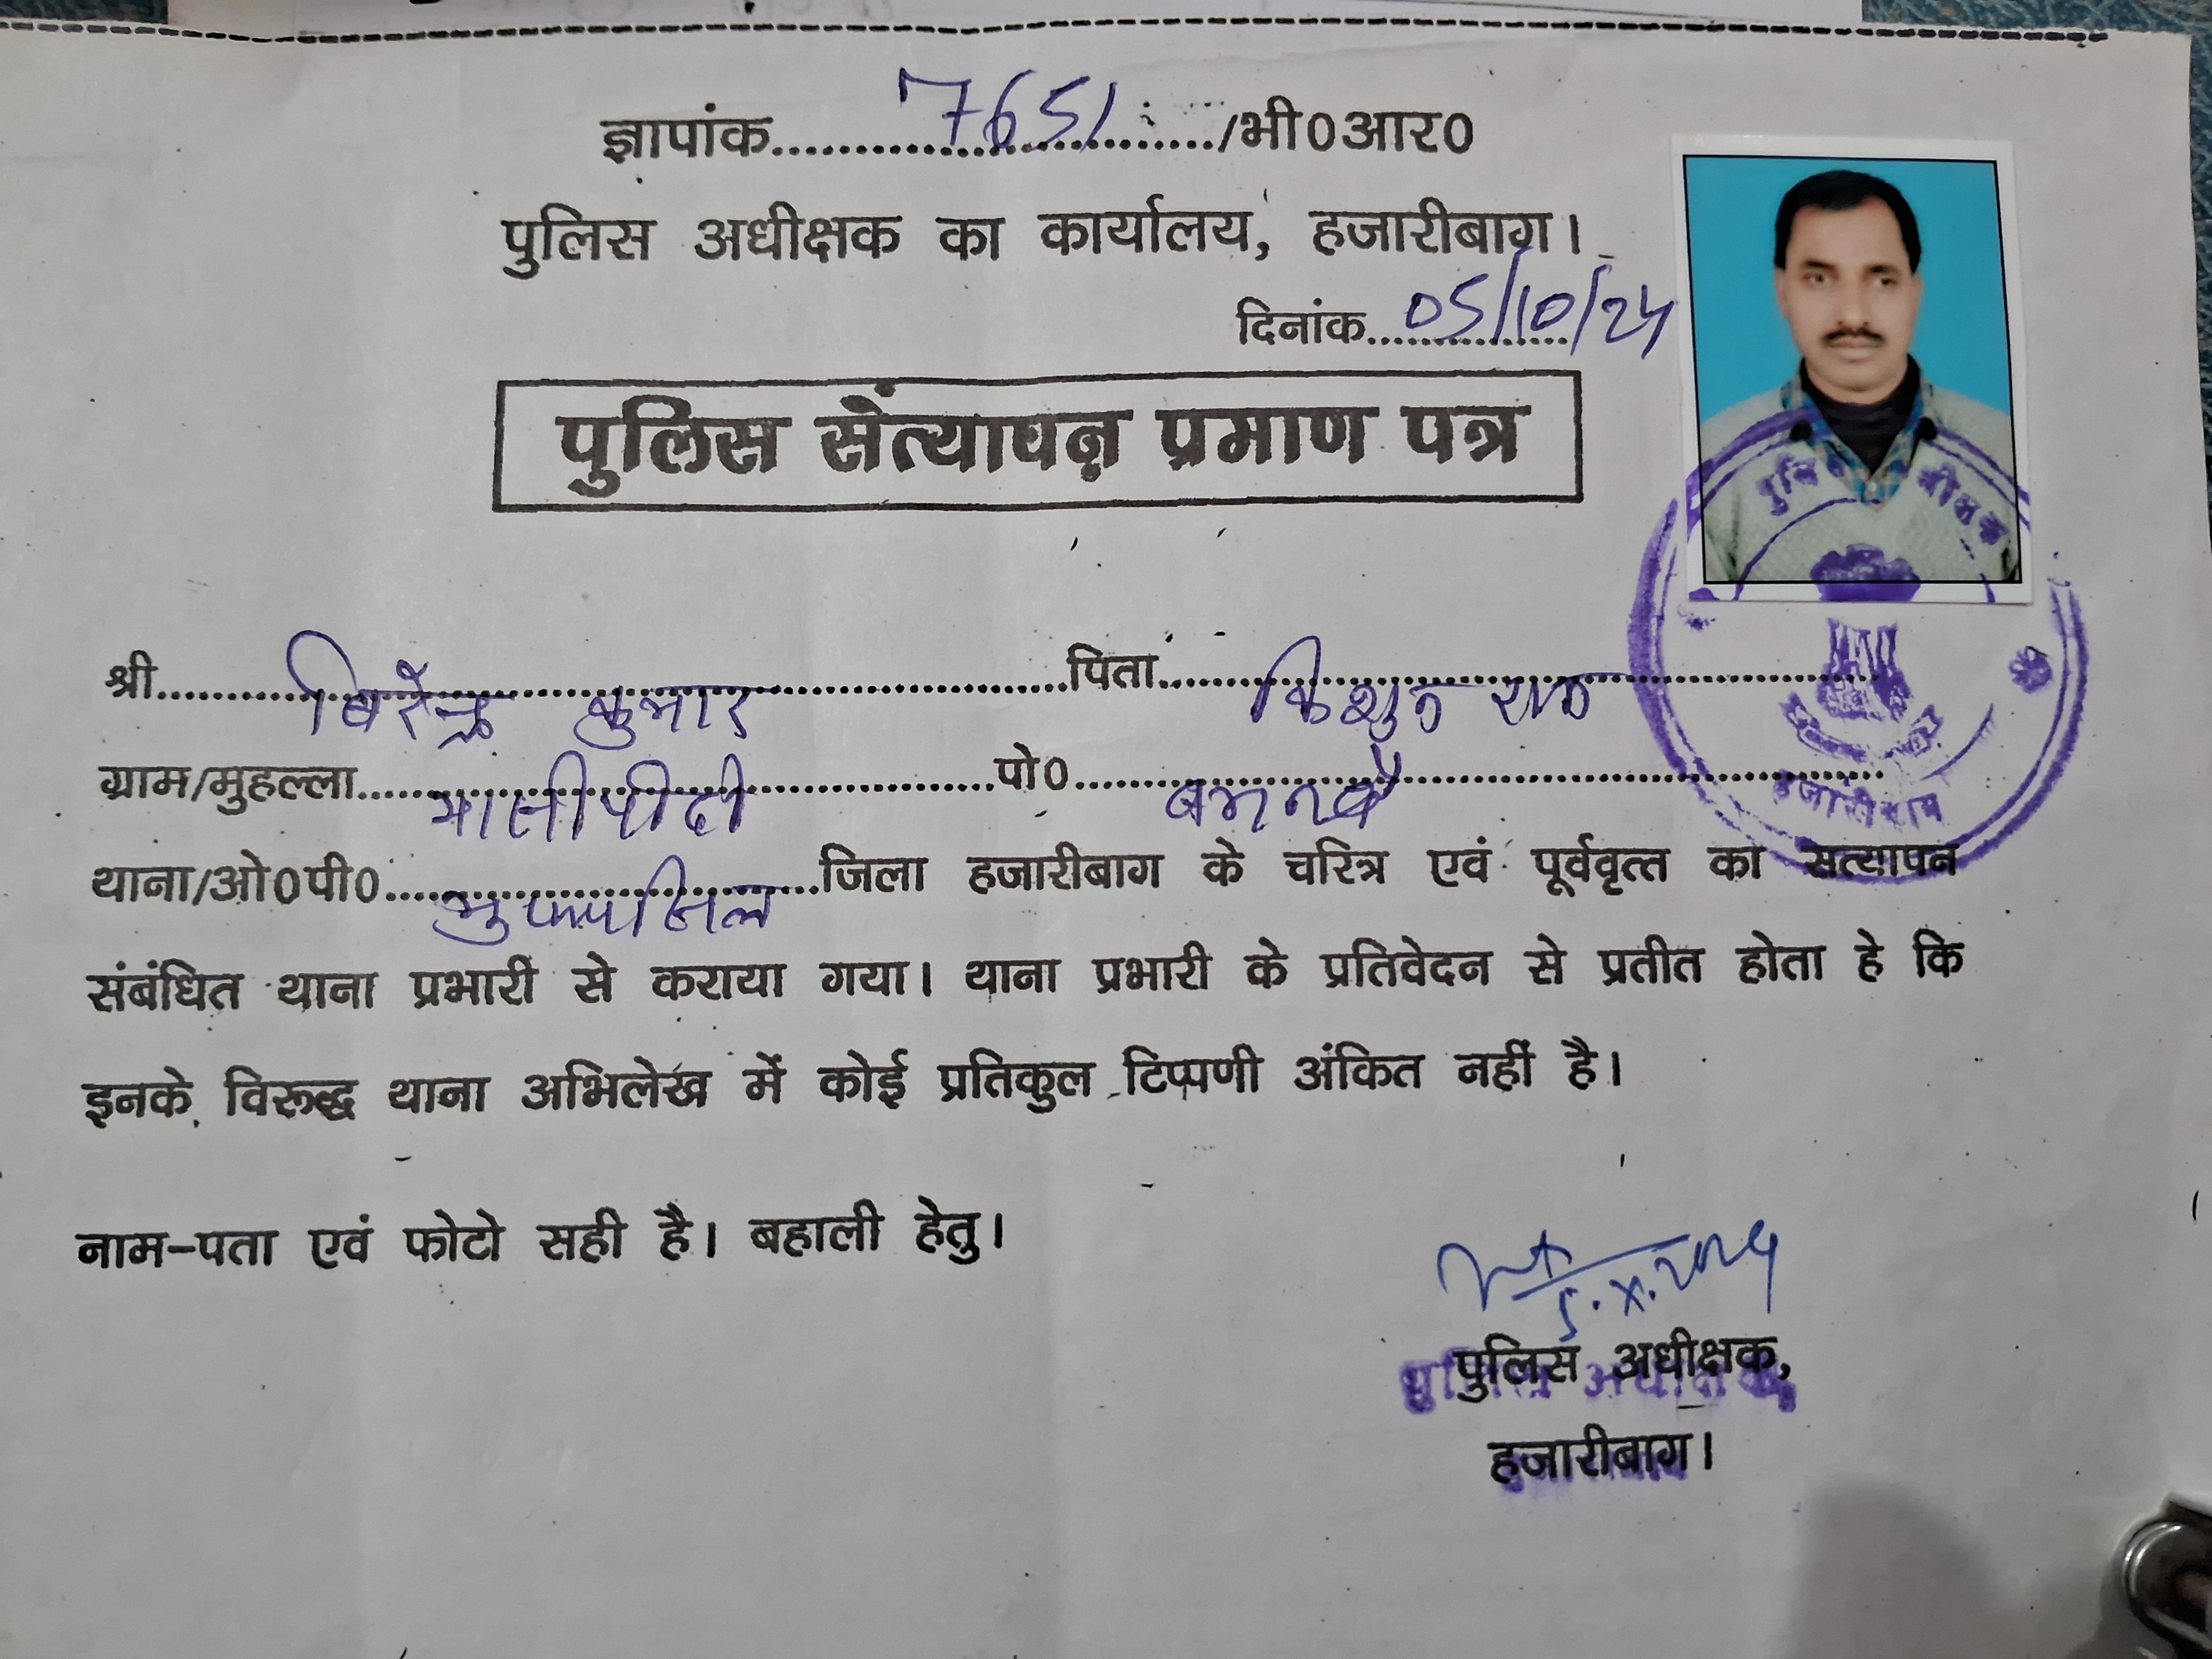 ज्ञापांक.......7651......./भी0आर0
पुलिस अधीक्षक का कार्यालय, हजारीबाग।
दिनांक...05/10/24
पुलिस सत्यापन प्रमाण पत्र
श्री.......बिरेन्द्र कुमार.......पिता.......किशुन राम.......
ग्राम/मुहल्ला..............पो0..............
थाना/ओ0पी0..............जिला हजारीबाग के चरित्र एवं पूर्ववृत्त का सत्यापन
संबंधित थाना प्रभारी से कराया गया। थाना प्रभारी के प्रतिवेदन से प्रतीत होता हे कि
इनके विरूद्ध थाना अभिलेख में कोई प्रतिकुल टिप्पणी अंकित नहीं है।
नाम-पता एवं फोटो सही है। बहाली हेतु।
5.X.2024
पुलिस अधीक्षक,
हजारीबाग।